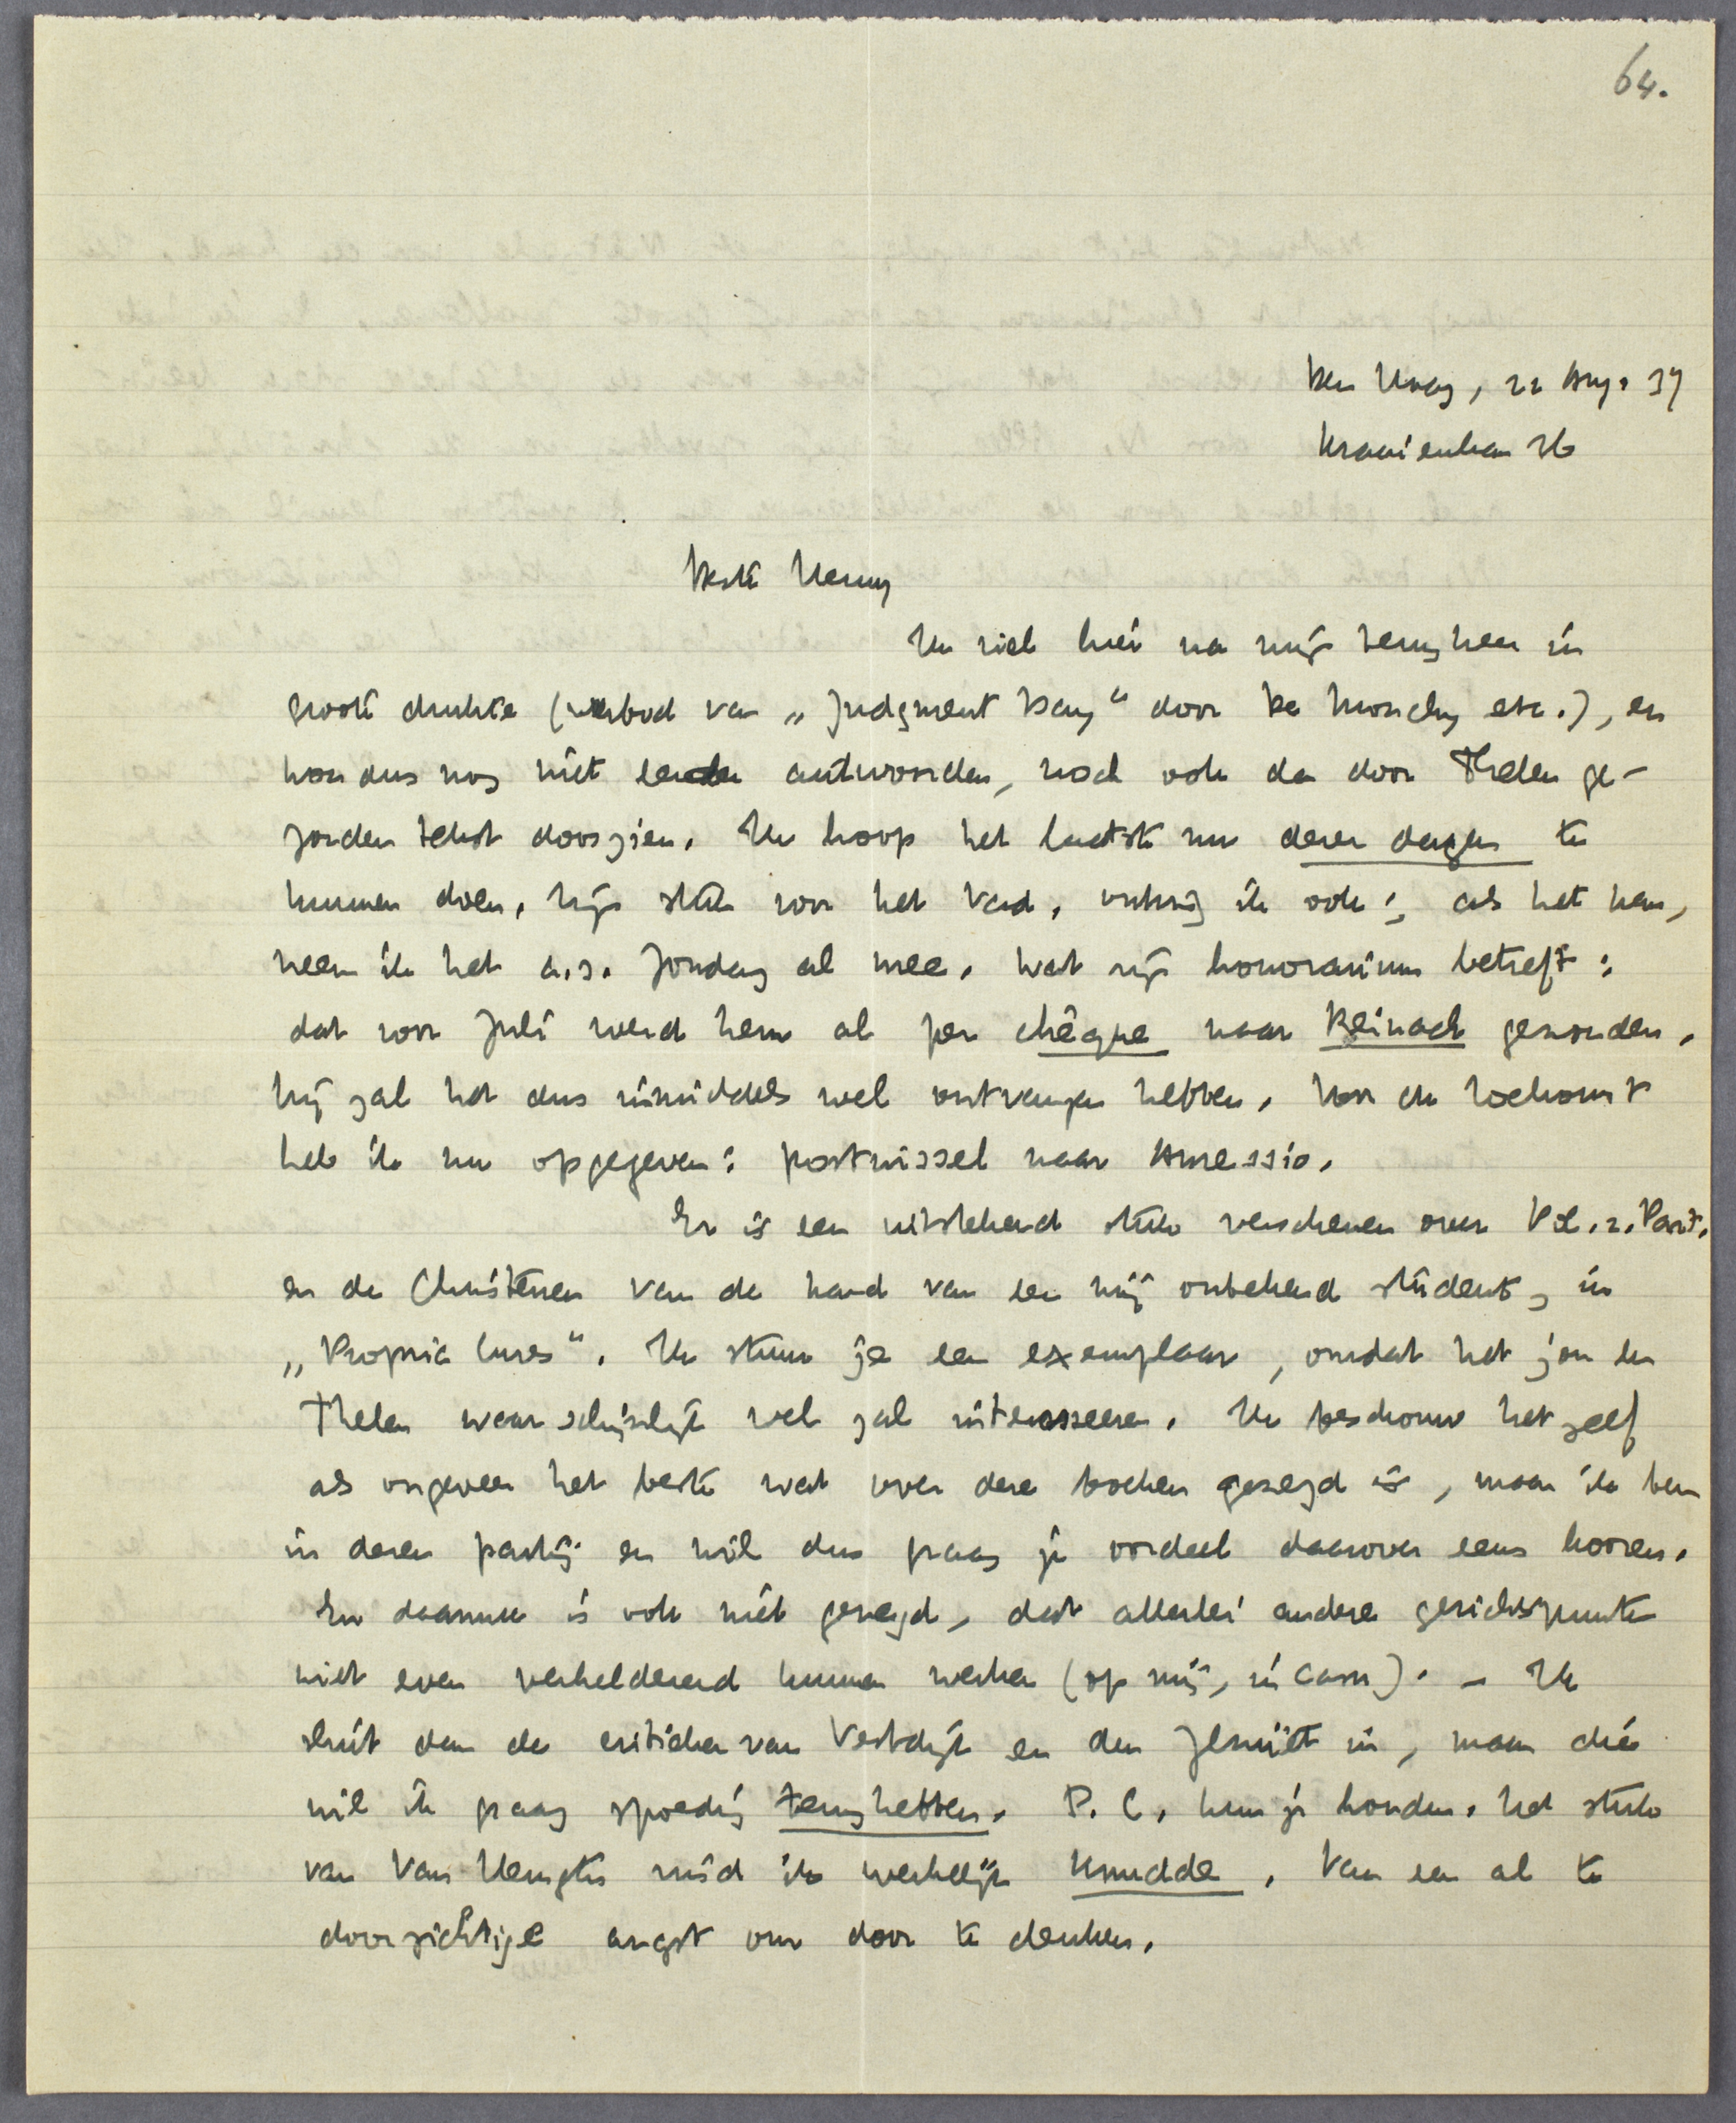 64.
Den Haag, 22 Aug. 37
Kraaienlaan 36
Beste Henny
Ik viel hier na mijn terugkeer in
groote drukte (verbod van „Judgment Day" door De Monchy etc.), en
kon dus nog niet eerder antwoorden, noch ook de door Thelen ge-
zonden tekst doorzien. Ik hoop het laatste nu dezer dagen te
kunnen doen. Zijn stuk voor het Vad. ontving ik ook; als het kan,
neem ik het a.s. Zondag al mee. Wat zijn honorarium betreft:
dat voor Juli werd hem al per chèque naar Beinach gezonden.
Hij zal het dus inmiddels wel ontvangen hebben. Voor de toekomst
heb ik nu opgegeven: postwissel naar Auressio.
Er is een uitstekend stuk verschenen over Pol. z. Partij.
en de Christenen van de hand van een mij onbekend student, in
„Propria Cures". Ik stuur je een exemplaar, omdat het jou en
Thelen waarschijnlijk wel zal interesseeren. Ik beschouw het zelf
als ongeveer het beste wat over deze boeken gezegd is, maar ik ben
in dezen partij en wil dus graag je oordeel daarover eens hooren.
En daarmee is ook niet gezegd, dat allerlei andere gezichtspunten
niet even verhelderend kunnen werken (op mij, in casu). – Ik
sluit dan de critieken van Vestdijk en den Jezuïet in, maar die
wil ik graag spoedig terughebben. P.C. kun je houden. Het stuk
van Van Lennep vind ik werkelijk knudde. Van een al te
doorzichtige angst om door te denken.